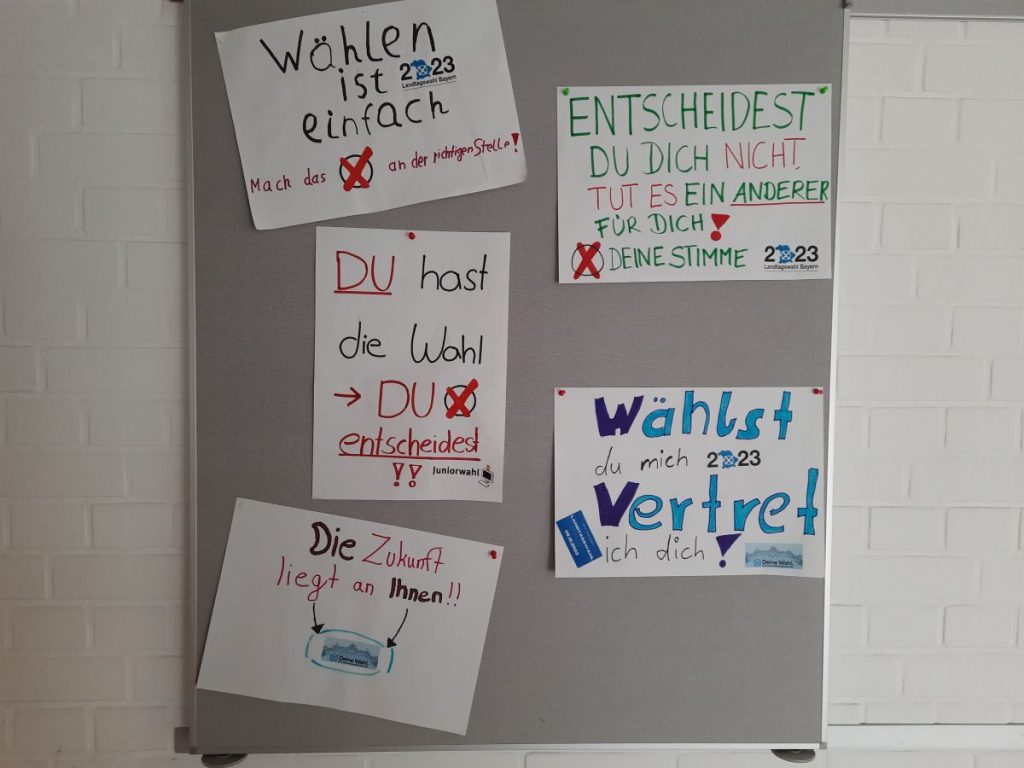 Wählen
ist
einfach
2023
Landtagswahl Bayern
Mach das an der richtigen Stelle!
ENTSCHEIDEST
DU DICH NICHT,
TUT ES EIN ANDERER
FÜR DICH!
DEINE STIMME
2023
Landtagswahl Bayern
DU hast
die Wahl
→ DU
entscheidest
!!
Juniorwahl
Wählst
du mich 2023
Vertret
ich dich!
Deine Wahl
Die Zukunft
liegt an Ihnen!!
Deine Wahl